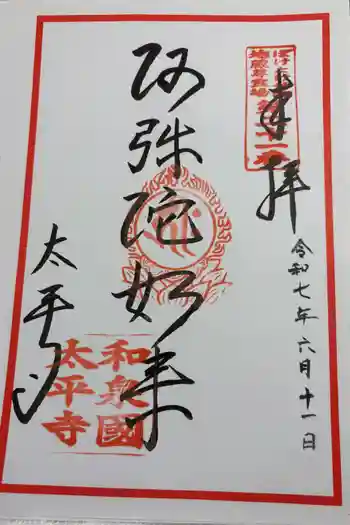 奉拝
ぼけよけ
地蔵尊霊場
令和七年六月十一日
阿弥陀如来
太平寺
和泉國
太平寺